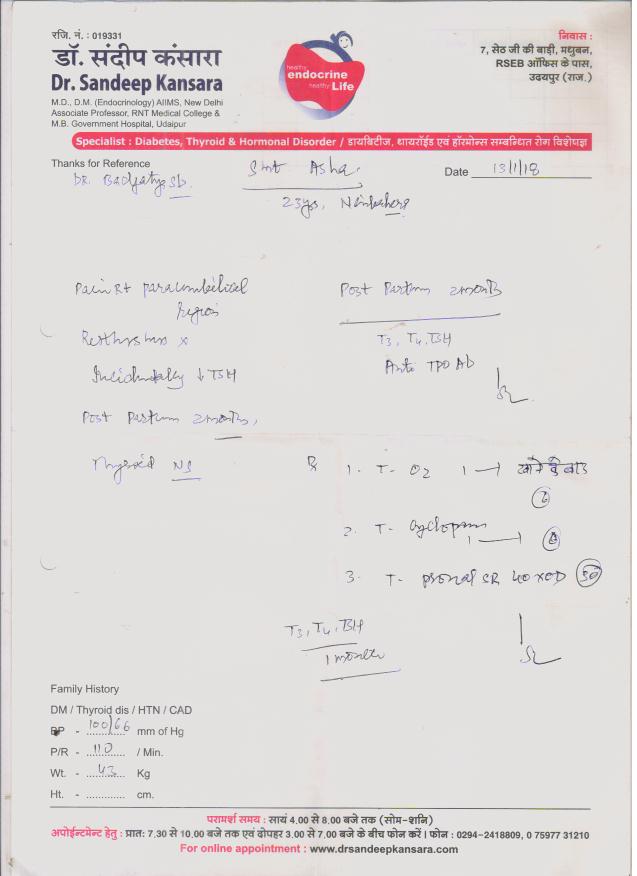 रजि. नं. : 019331
डॉ. संदीप कंसारा
Dr. Sandeep Kansara
M.D., D.M. (Endocrinology) AIIMS, New Delhi
Associate Professor, RNT Medical College &
M.B. Government Hospital, Udaipur
healthy
endocrine
healthy Life
निवास :
7, सेठ जी की बाड़ी, मधुबन,
RSEB ऑफिस के पास,
उदयपुर (राज.)
Specialist : Diabetes, Thyroid & Hormonal Disorder / डायबिटीज, थायरॉईड एवं हॉरमोन्स सम्बन्धित रोग विशेषज्ञ
Thanks for Reference
DR.
Smt Asha
Date 13/1/18
23yrs,
Pain Rt paraumbilical
Region
Incidentally ↓ TSH
Post Partum 2months,
Thyroid NS
Post Partum 2months
T3, T4, TSH
Anti TPO Ab
Rx
1. T- O2 1 — खाने के बाद
2. T- Cyclopam
1 —
3. T- SR 40 x OD 30
T3, T4, TSH
1 month
Family History
DM / Thyroid dis / HTN / CAD
BP - 100/66 mm of Hg
P/R - 110 / Min.
Wt. - 43 Kg
Ht. - ............. cm.
परामर्श समय : सायं 4.00 से 8.00 बजे तक (सोम-शनि)
अपोईन्टमेन्ट हेतु : प्रात: 7.30 से 10.00 बजे तक एवं दोपहर 3.00 से 7.00 बजे के बीच फोन करें। फोन : 0294-2418809, 0 75977 31210
For online appointment : www.drsandeepkansara.com